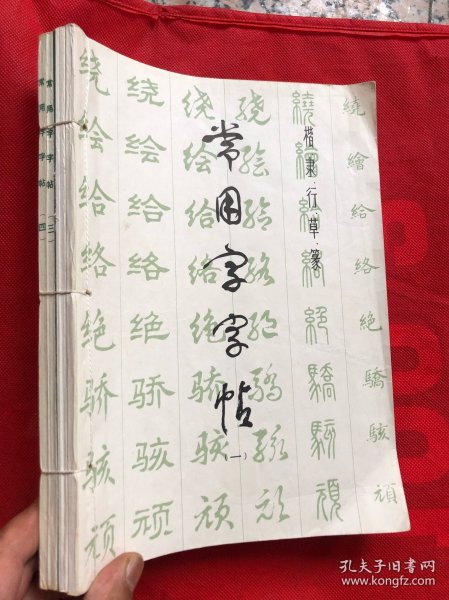 常用字字帖
(一)
楷·隶·行·草·篆
绕绘给络绝骄骇顽
绕绘给络绝骄骇顽
绕绘给络绝骄骇顽
绕绘给络绝骄骇顽
繞繪給絡絕驕駭頑
繞繪給絡絕驕駭頑
常用字字帖(三)
常用字字帖(四)
孔夫子旧书网
www.kongfz.com